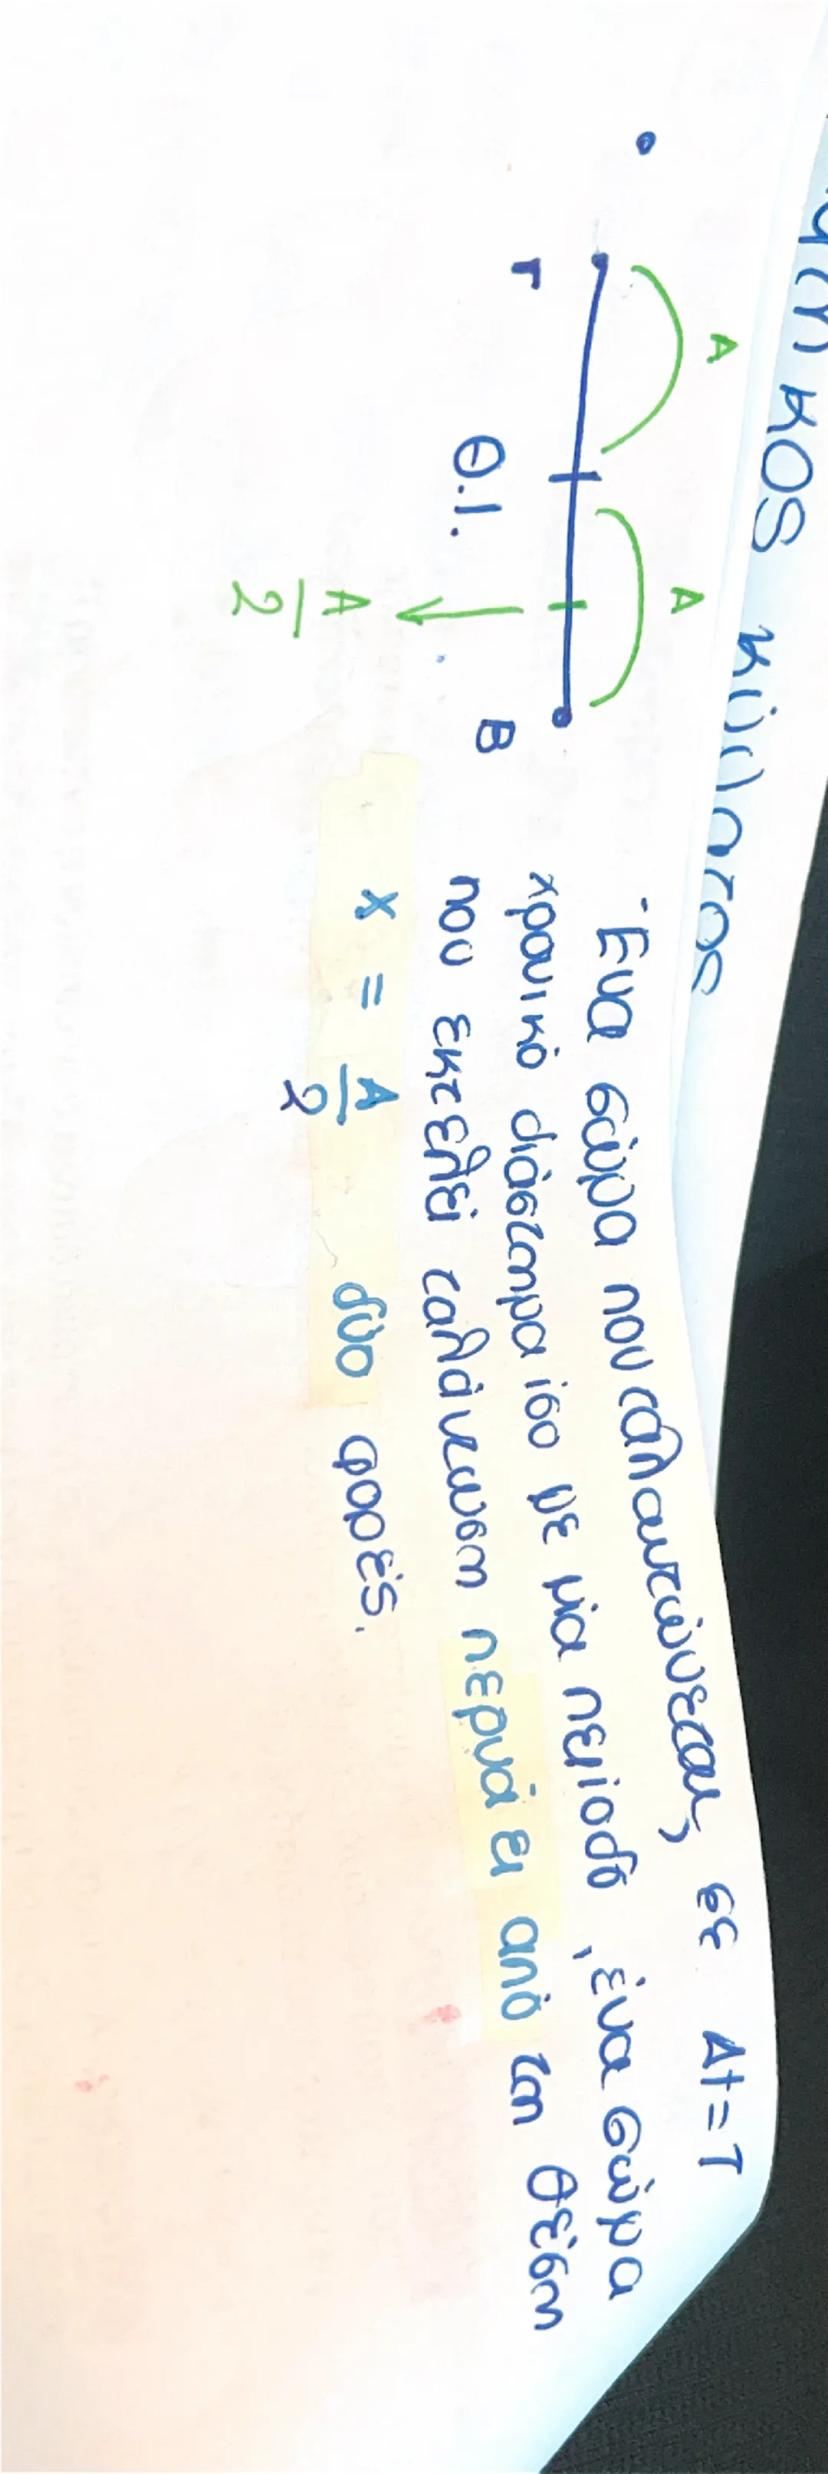 κος κύματος
A
A
Γ
Θ.Ι.
B
A/2
Ένα σώμα που ταλαντώνεται, σε Δt=T
χρονικό διάστημα ίσο με μία περίοδο, ένα σώμα
που εκτελεί ταλάντωση περνάει από τη θέση
x = A/2 δύο φορές.